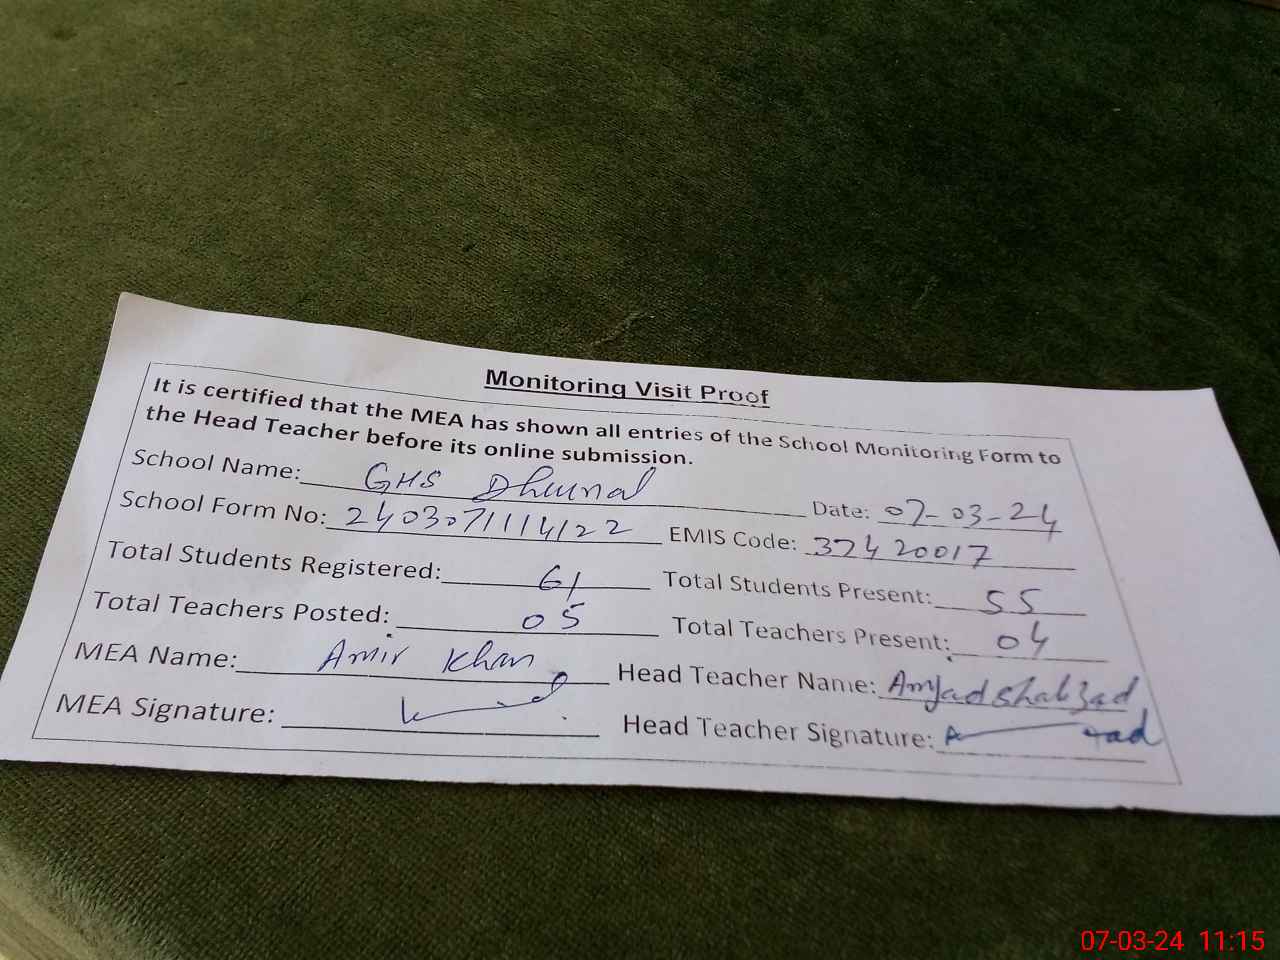 Monitoring Visit Proof
It is certified that the MEA has shown all entries of the School Monitoring Form to
the Head Teacher before its online submission.
School Name: GHS Dhurnal Date: 07-03-24
School Form No: 2403071114122 EMIS Code: 37420017
Total Students Registered: 61 Total Students Present: 55
Total Teachers Posted: 05 Total Teachers Present: 04
MEA Name: Amir Khan Head Teacher Name: Amjad Shahzad
MEA Signature: Head Teacher Signature:
07-03-24 11:15